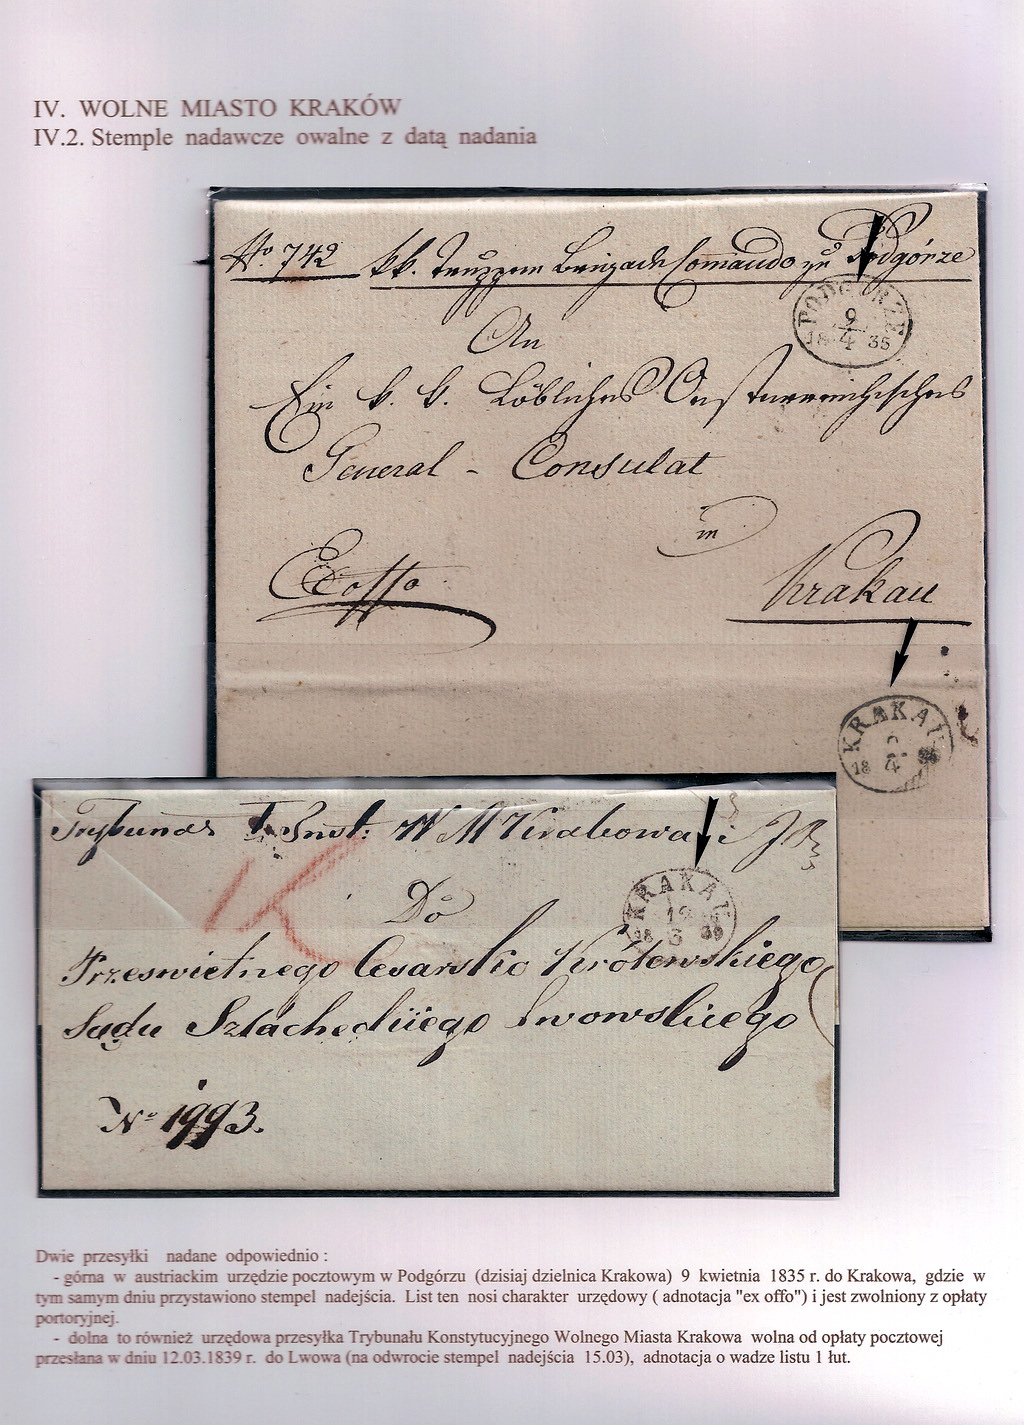 IV. WOLNE MIASTO KRAKÓW
IV.2. Stemple nadawcze owalne z datą nadania
No. 742 kk. Truppen Brigade Comando zu Podgórze
PODGÓRZE
9
18 4 35
An
Ein k. k. Löbliches Oesterreichisches
General - Consulat
in
Exoffo
Krakau
KRAKAU
18 4
Trybunał I Inst: W M Krakowa i
KRAKAU
12
18 3 39
Do
Prześwietnego Cesarsko Królewskiego
Sądu Szlacheckiego Lwowskiego
No 1993.
Dwie przesyłki nadane odpowiednio :
- górna w austriackim urzędzie pocztowym w Podgórzu (dzisiaj dzielnica Krakowa) 9 kwietnia 1835 r. do Krakowa, gdzie w
tym samym dniu przystawiono stempel nadejścia. List ten nosi charakter urzędowy ( adnotacja "ex offo") i jest zwolniony z opłaty
portoryjnej.
- dolna to również urzędowa przesyłka Trybunału Konstytucyjnego Wolnego Miasta Krakowa wolna od opłaty pocztowej
przesłana w dniu 12.03.1839 r. do Lwowa (na odwrocie stempel nadejścia 15.03), adnotacja o wadze listu 1 łut.